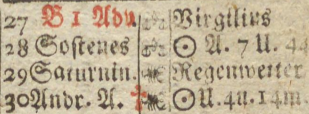 27 B 1 Adv. Virgilius
28 Sostenes ☉ A. 7 U. 44
29 Saturnin. Regenwetter
30 Andr. A. † ☉ U. 4u. 14m.